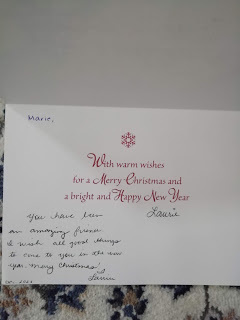 Marie,
With warm wishes
for a Merry Christmas and
a bright and Happy New Year
Laurie
You have been
an amazing friend.
I wish all good things
to come to you in the new
year. Merry Christmas!
Laurie